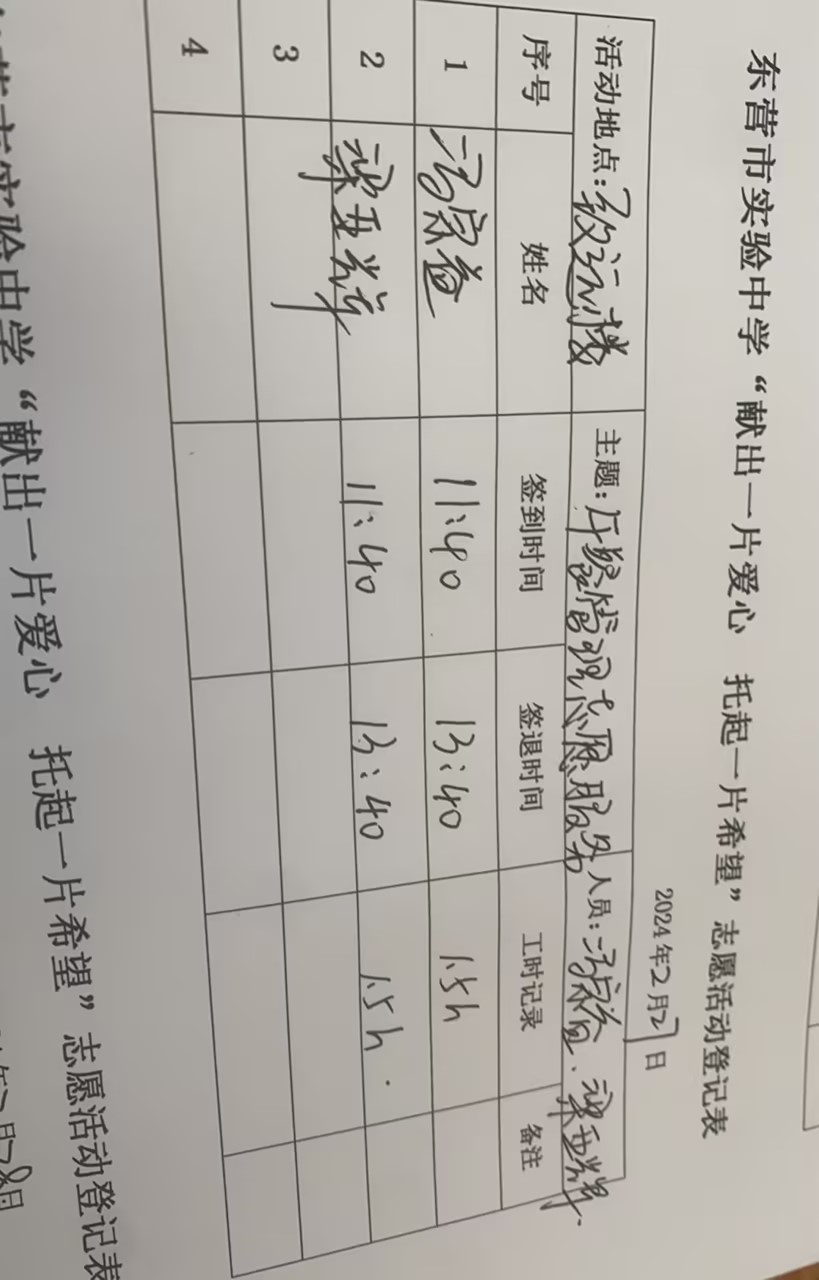 东营市实验中学“献出一片爱心 托起一片希望”志愿活动登记表
2024年2月27日
活动地点：致远楼 主题：午餐管理志愿服务 人员：
序号 姓名 签到时间 签退时间 工时记录 备注
1 11:40 13:40 1.5h
2 梁亚辉 11:40 13:40 1.5h.
3
4
市实验中学“献出一片爱心 托起一片希望”志愿活动登记表
月28日